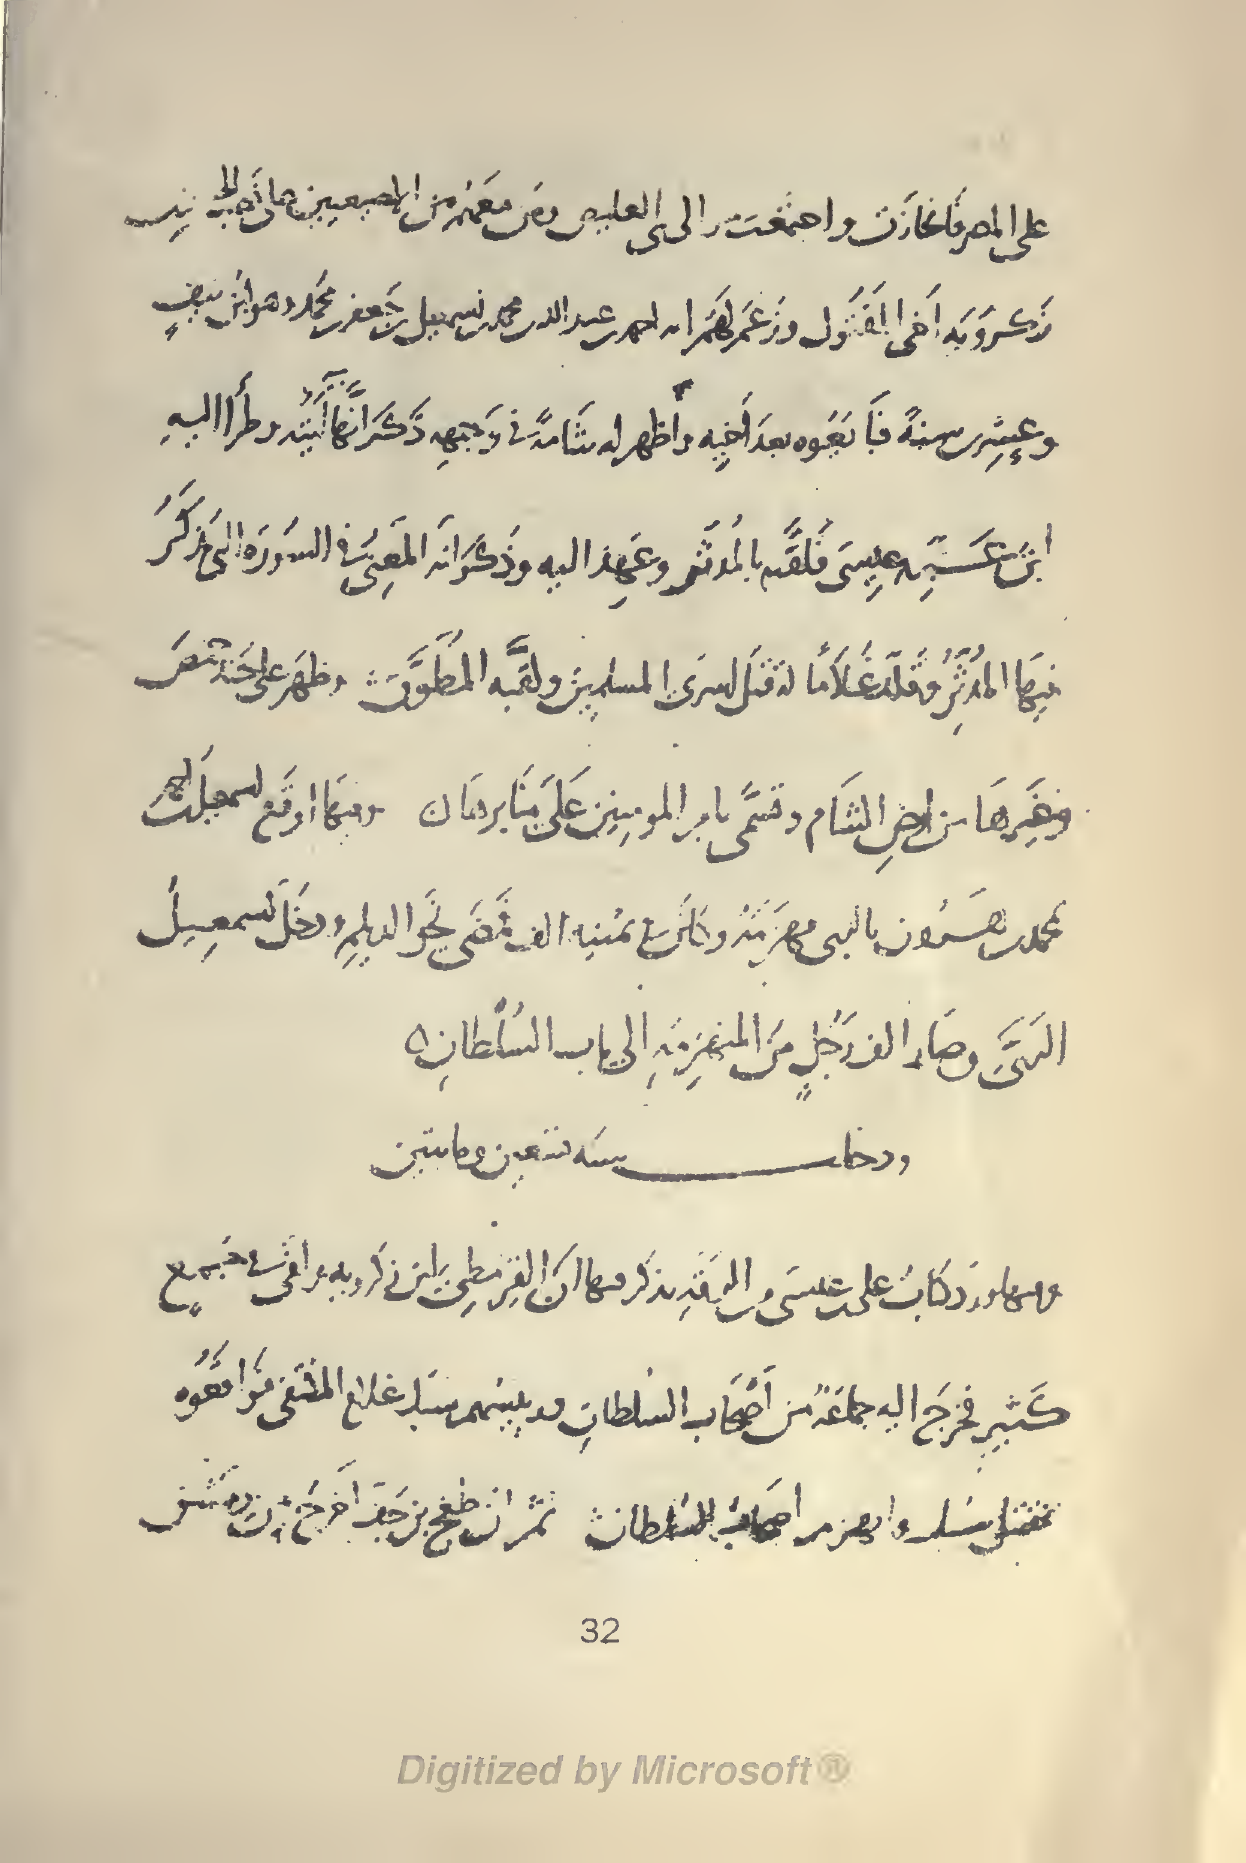 على المصر فانحازت واجتمعت موالى بنى العليص ومن معهم من الاصبعيين بنى
زكرويه اخى المقتول وزعم لهم انه احمد بن عبد الله بن محمد بن اسمعيل بن جعفر بن محمد وهو ابن نيف
وعشرين سنة فبايعوه بعد اخيه واظهر لهم شامة في وجهه ذكر انها آيته وطرأ اليه
ابن عمه عيسى فلقبه بالمدثر وعهد اليه وذكر انه المعنى في السورة التى يذكر
فيها المدثر وقلد غلاما له قتل اسرى المسلمين ولقبه المطوق وظهر على جند حمص
وغيرها من ارض الشام وتسمى بامير المومنين على منابرها ۞ وفيها اوقع اسمعيل بن احمد
بمحمد بن هرون بالرى فهزمه وكان في ثمنيه الف فمضى نحو الديلم ودخل اسمعيل
الرىّ وصار الف رجل من المنهزمة الى باب السلطان ۞
ودخلت سنه تسعين ومايتين
وفيها ورد كتاب على بن عيسى من الرقة يذكر فيها ان القرمطى ابن زكرويه وافى في جمع
كثير فخرج اليه جماعة من اصحاب السلطان ورييسهم سبك غلام المكتفى فواقعوه
فقتل سبك وانهزم اصحاب السلطان ۞ ثم ان طغج بن جف اخرج من دمشق
32
Digitized by Microsoft ®